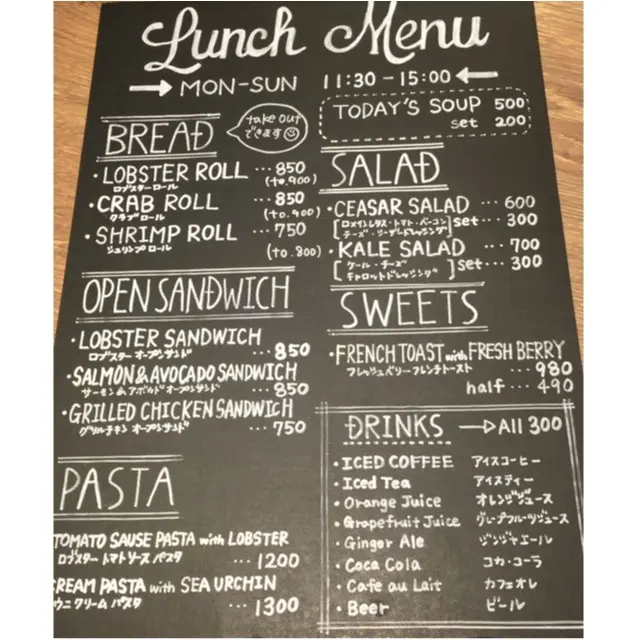 Lunch Menu
MON-SUN 11:30-15:00
BREAD
take out
できます
・LOBSTER ROLL ･･･850
ロブスターロール (to.900)
・CRAB ROLL ･･･850
クラブロール (to.900)
・SHRIMP ROLL ･･･750
シュリンプロール (to.800)
OPEN SANDWICH
・LOBSTER SANDWICH
ロブスター オープンサンド ･･･850
・SALMON&AVOCADO SANDWICH
サーモン&アボカド オープンサンド ･･･850
・GRILLED CHICKEN SANDWICH
グリルチキン オープンサンド ･･･750
PASTA
TOMATO SAUSE PASTA with LOBSTER
ロブスター トマトソース パスタ ･･･1200
CREAM PASTA with SEA URCHIN
ウニ クリーム パスタ ･･･1300
TODAY'S SOUP 500
set 200
SALAD
・CEASAR SALAD ･･･600
[ロメインレタス・トマト・ベーコン
チーズ・シーザードレッシング] set･･･300
・KALE SALAD ･･･700
[ケール・チーズ
キャロットドレッシング] set･･･300
SWEETS
・FRENCH TOAST with FRESH BERRY
フレッシュベリーフレンチトースト ･･･980
half･･･490
DRINKS All 300
・ICED COFFEE アイスコーヒー
・Iced Tea アイスティー
・Orange Juice オレンジジュース
・Grapefruit Juice グレープフルーツジュース
・Ginger Ale ジンジャエール
・Coca Cola コカ・コーラ
・Cafe au Lait カフェオレ
・Beer ビール